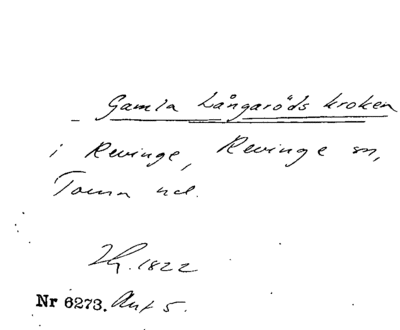 Gamla Långaröds kroken
i Revinge, Revinge sn,
Torna hd.
Hg. 1822
Nr 6273. Ant 5.